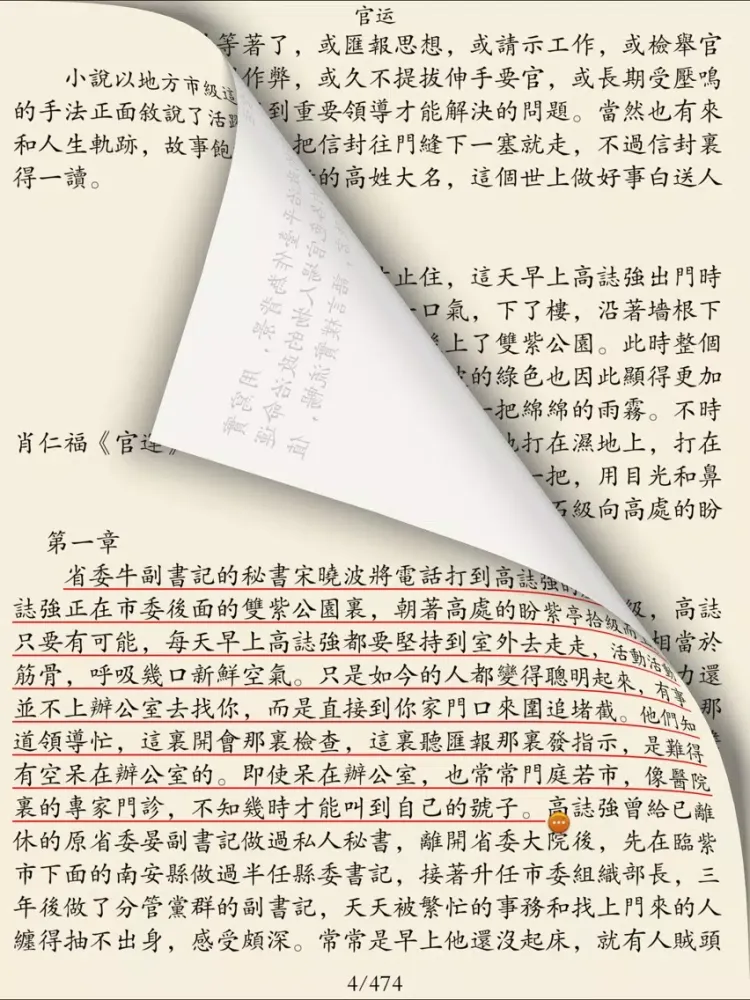 官运
小說以地方市級這
的手法正面敘說了活躍
和人生軌跡，故事飽
得一讀。
背景，用寫實
官場人物的政治命運
語言樸實流暢，值
肖仁福《官運》
第一章
省委牛副書記的秘書宋曉波將電話打到高誌強的
誌強正在市委後面的雙紫公園裏，朝著高處的盼紫亭拾級而
只要有可能，每天早上高誌強都要堅持到室外去走走，活動活動
筋骨，呼吸幾口新鮮空氣。只是如今的人都變得聰明起來，有事
並不上辦公室去找你，而是直接到你家門口來圍追堵截。他們知
道領導忙，這裏開會那裏檢查，這裏聽匯報那裏發指示，是難得
有空呆在辦公室的。即使呆在辦公室，也常常門庭若市，像醫院
裏的專家門診，不知幾時才能叫到自己的號子。高誌強曾給已離
休的原省委晏副書記做過私人秘書，離開省委大院後，先在臨紫
市下面的南安縣做過半任縣委書記，接著升任市委組織部長，三
年後做了分管黨群的副書記，天天被繁忙的事務和找上門來的人
纏得抽不出身，感受頗深。常常是早上他還沒起床，就有人賊頭
等著了，或匯報思想，或請示工作，或檢舉官
作弊，或久不提拔伸手要官，或長期受壓鳴
到重要領導才能解決的問題。當然也有來
把信封往門縫下一塞就走，不過信封裏
的高姓大名，這個世上做好事白送人
止住，這天早上高誌強出門時
口氣，下了樓，沿著墻根下
上了雙紫公園。此時整個
的綠色也因此顯得更加
一把綿綿的雨霧。不時
地打在濕地上，打在
一把，用目光和鼻
石級向高處的盼
級，高誌
相當於
力還
那
4/474